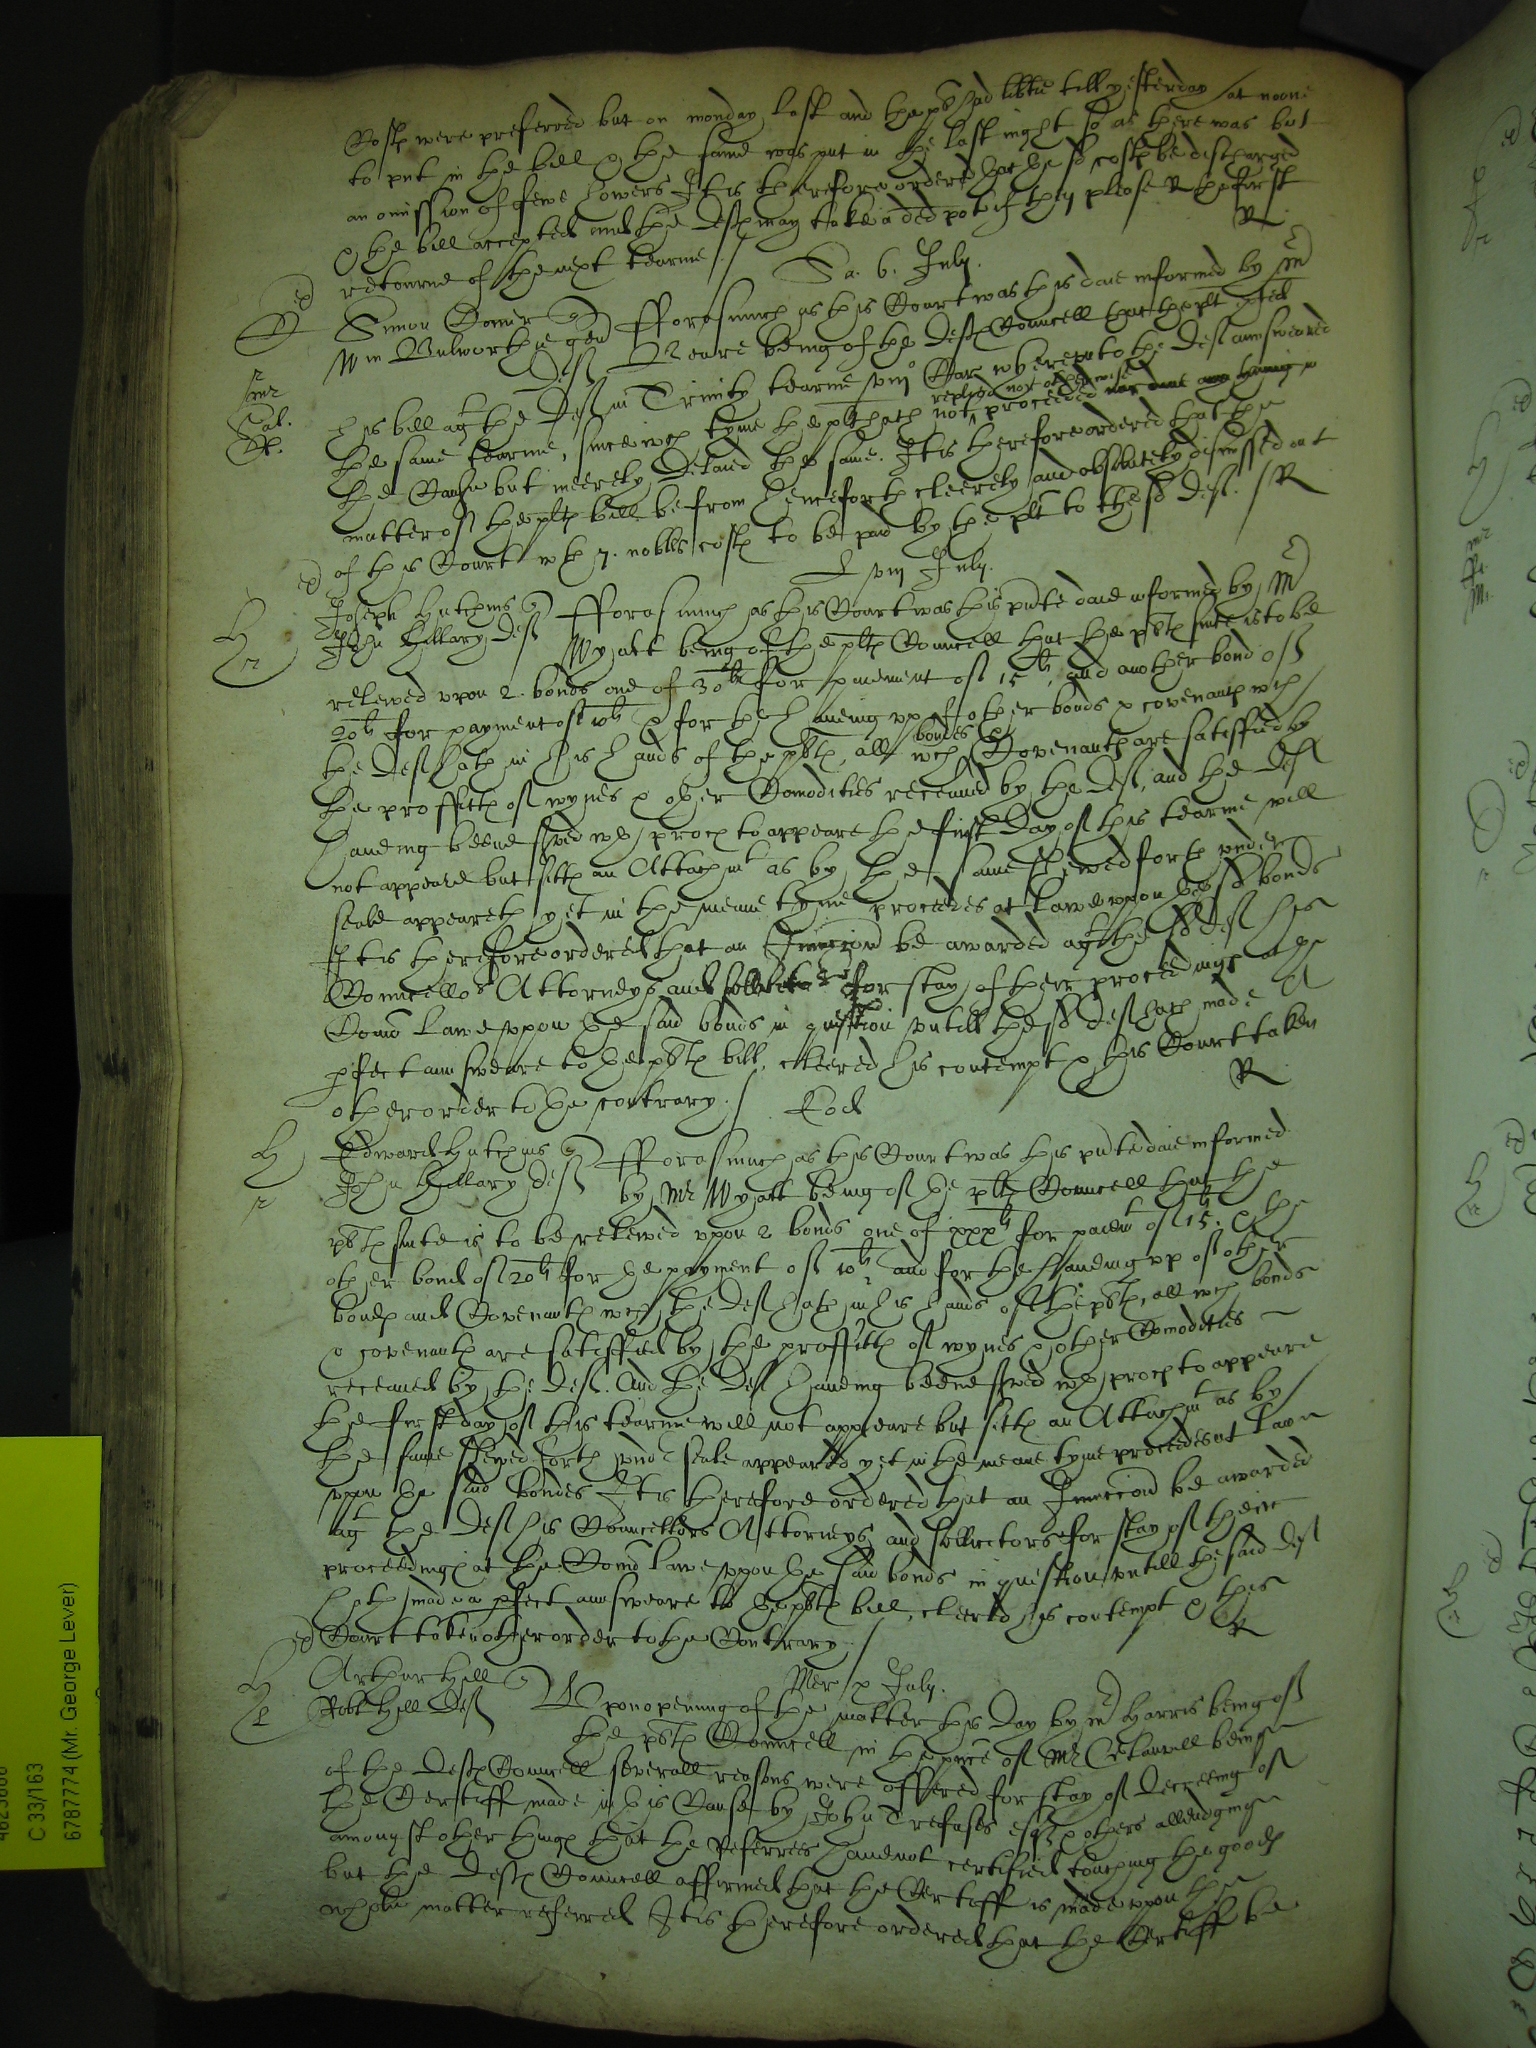 Costs were preferred but on monday last and the plt had libtie till yesterday at noone
to put in the bill & the same was put in the last night so as there was but
an omission of fewe howers It is therefore ordered that the sd costs be discharged
& the bill accepted and the deft may take a ded pot if they please R the first
retourne of the next tearme / R
Sa. 6. July.
Simon Comer
Wm Bulworthie gen deft
Forasmuch as this Court was this daie informed by Mr
Weare being of the defts Councell that the plt exted
his bill agt the deft in Trinity tearme Car whereunto the deft answeared
the same tearme, since wch tyme the plt hath not replyed nor otherwise proceeded in
the Cause but meerely delaied the same. It is therefore ordered that the
matter of the plts bill be from henceforth cleerely and absolutely dismissed out
of this Court wth 7. nobles costs to be paid by the plt to the sd deft. / R
L viij July.
Joseph Hutchins
John Hillary deft
Forasmuch as this Court was this pnte daie informed by Mr
Wyatt being of the plts Councell that the plts suite is to be
releived upon 2. bonds one of 30li for paiement of 15li, and another bond of
20li for payment of xli & for the haveing up of other bonds & covenants wch
the deft hath in his hands of the plts, all wch bondes & Covenants are satisfied by
the proffitts of wynes & other Comodities received by the deft, and the deft
haveing beene served wth proces to appeare the first day of this tearme will
not appeare but sitts an Attachmt as by the same shewed forth under
seale appeareth yet in the meane tyme proceedes at Lawe uppon the sd bonds
It is therefore ordered that an Iniunccion be awarded agt the sd deft his
Councellors Attorneys and sollicitors for stay of their proceedings at the
Comon Lawe uppon the said bonds in question untill the sd deft hath made a
pfect answeare to the plts bill, cleered his contempt & this Court taken
other order to the contrary. / R
Eod
Edward Hutchins
John Hillary deft
Forasmuch as this Court was this pnte daie informed
by Mr Wyatt being of the plts Councell that the
plts suite is to be releived upon 2 bonds one of xxxli for paiemt of 15li & the
other bond of 20li for the payment of 10li and for the haveing up of other
bonds and Covenants wch the deft hath in his hands of the plts, all wch bonds
& covenants are satisfied by the proffitts of wynes & other Comodities
received by the deft. And the deft haveing beene served wth proces to appeare
the first day of this tearme will not appeare but sitts an Attachmt as by
the same shewed forth under seale appeareth yet in the meane tyme proceedes at Lawe
upon the said bondes It is therefore ordered that an Iniunccion be awarded
agt the deft his Councellors Attorneys and sollicitors for stay of their
proceedings at the Comon Lawe upon the said bonds in question untill the said deft
hath made a pfect answeare to the plts bill, cleered his contempt & this
Court taken other order to the Contrary. / R
Mer x July.
Arthur Hill
Robt Hill deft
Upon opening of the matter this day by Mr Harris being of
the plts Councell in the pnce of Mr Estcourt being
of the defts Councell severall reasons were offered for stay of decreeing of
the Certiff made in this Cause by John Trefusis esqr & others alleadging
amongst other things that the Referrees have not certified touching the goods
but the defts Councell affirmed that the Certiff is made upon the
whole matter referred It is therefore ordered that the Certiff be
C 33/163
6787774 (Mr. George Lever)